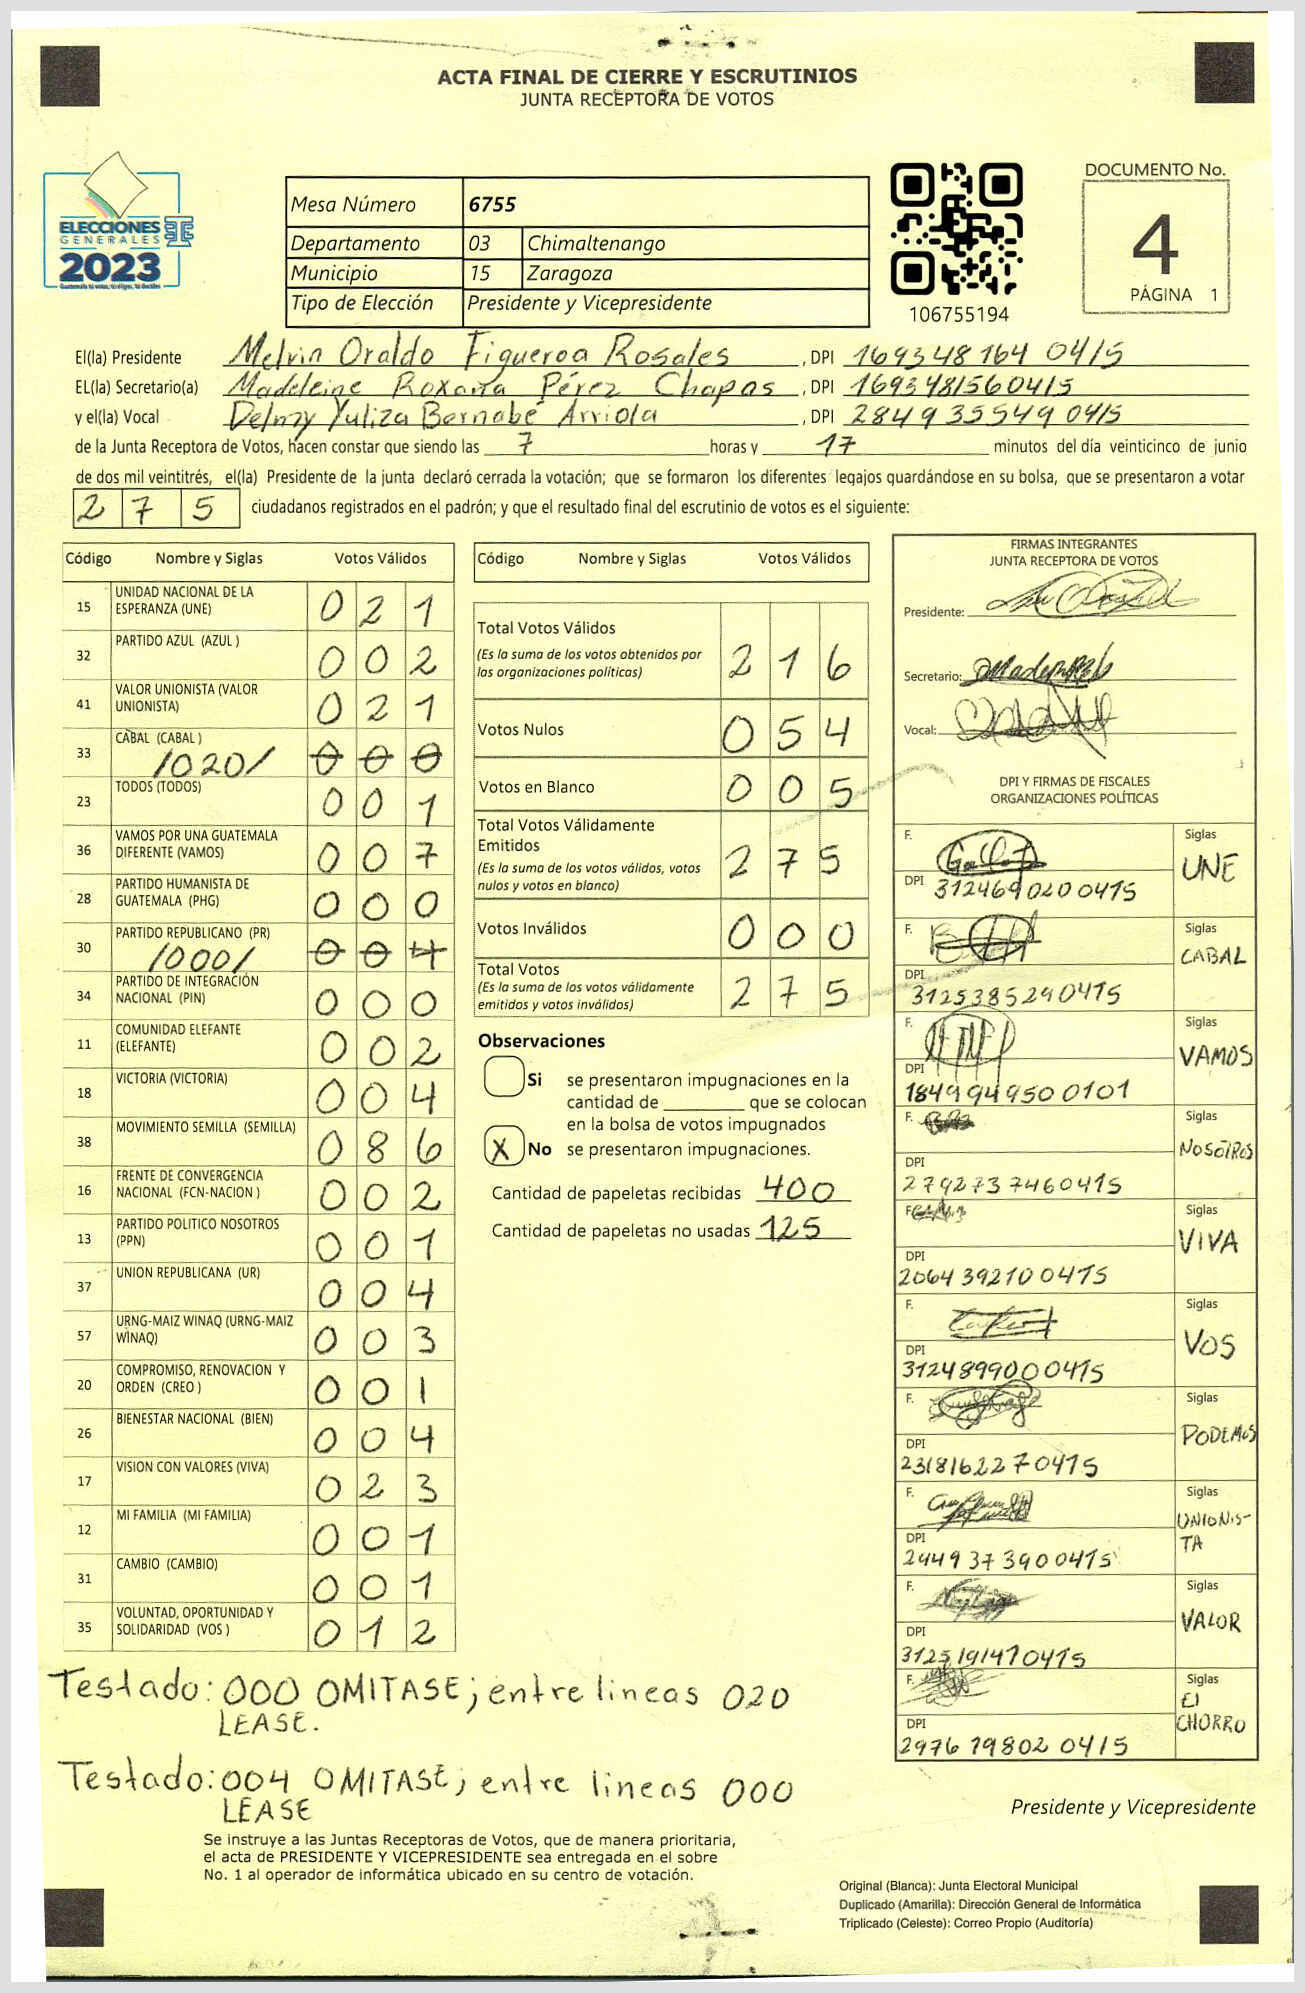 ACTA FINAL DE CIERRE Y ESCRUTINIOS
JUNTA RECEPTORA DE VOTOS
ELECCIONES
GENERALES
2023
Mesa Número 6755
Departamento 03 Chimaltenango
Municipio 15 Zaragoza
Tipo de Elección Presidente y Vicepresidente
106755194
DOCUMENTO No.
4
PÁGINA 1
El(la) Presidente Melvin Oraldo Figueroa Rosales, DPI 169348164 0415
EL(la) Secretario(a) Madeleine Roxana Pérez Chapas, DPI 1693481560415
y el(la) Vocal Delmy Yuliza Bernabé Arriola, DPI 284935549 0415
de la Junta Receptora de Votos, hacen constar que siendo las 7 horas y 17 minutos del día veinticinco de junio
de dos mil veintitrés, el(la) Presidente de la junta declaró cerrada la votación; que se formaron los diferentes legajos guardándose en su bolsa, que se presentaron a votar
2 7 5 ciudadanos registrados en el padrón; y que el resultado final del escrutinio de votos es el siguiente:
Código Nombre y Siglas Votos Válidos
15 UNIDAD NACIONAL DE LA
ESPERANZA (UNE) 0 2 1
32 PARTIDO AZUL (AZUL ) 0 0 2
41 VALOR UNIONISTA (VALOR
UNIONISTA) 0 2 1
33 CABAL (CABAL )
/020/ 0 0 0
23 TODOS (TODOS) 0 0 1
36 VAMOS POR UNA GUATEMALA
DIFERENTE (VAMOS) 0 0 7
28 PARTIDO HUMANISTA DE
GUATEMALA (PHG) 0 0 0
30 PARTIDO REPUBLICANO (PR)
/000/ 0 0 4
34 PARTIDO DE INTEGRACIÓN
NACIONAL (PIN) 0 0 0
11 COMUNIDAD ELEFANTE
(ELEFANTE) 0 0 2
18 VICTORIA (VICTORIA) 0 0 4
38 MOVIMIENTO SEMILLA (SEMILLA) 0 8 6
16 FRENTE DE CONVERGENCIA
NACIONAL (FCN-NACION ) 0 0 2
13 PARTIDO POLITICO NOSOTROS
(PPN) 0 0 1
37 UNION REPUBLICANA (UR) 0 0 4
57 URNG-MAIZ WINAQ (URNG-MAIZ
WINAQ) 0 0 3
20 COMPROMISO, RENOVACION Y
ORDEN (CREO ) 0 0 1
26 BIENESTAR NACIONAL (BIEN) 0 0 4
17 VISION CON VALORES (VIVA) 0 2 3
12 MI FAMILIA (MI FAMILIA) 0 0 1
31 CAMBIO (CAMBIO) 0 0 1
35 VOLUNTAD, OPORTUNIDAD Y
SOLIDARIDAD (VOS ) 0 1 2
Código Nombre y Siglas Votos Válidos
Total Votos Válidos
(Es la suma de los votos obtenidos por
las organizaciones politicas) 2 1 6
Votos Nulos 0 5 4
Votos en Blanco 0 0 5
Total Votos Válidamente
Emitidos
(Es la suma de los votos válidos, votos
nulos y votos en blanco) 2 7 5
Votos Inválidos 0 0 0
Total Votos
(Es la suma de los votos válidamente
emitidos y votos inválidos) 2 7 5
Observaciones
Si se presentaron impugnaciones en la
cantidad de ________ que se colocan
en la bolsa de votos impugnados
X No se presentaron impugnaciones.
Cantidad de papeletas recibidas 400
Cantidad de papeletas no usadas 125
FIRMAS INTEGRANTES
JUNTA RECEPTORA DE VOTOS
Presidente:
Secretario:
Vocal:
DPI Y FIRMAS DE FISCALES
ORGANIZACIONES POLÍTICAS
F. Siglas
UNE
DPI 3124690200415
F. Siglas
CABAL
DPI 3125385290415
F. Siglas
VAMOS
DPI 1849949500101
F. Siglas
NOSOTROS
DPI
2792737460415
F. Siglas
VIVA
DPI
2064392100415
F. Siglas
VOS
DPI
3124899000415
F. Siglas
PODEMOS
DPI
2318162270415
F. Siglas
UNIONIS-
TA
DPI
2449373900415
F. Siglas
VALOR
DPI
3125191470415
F. Siglas
El
CHORRO
DPI
2976198020415
Testado: 000 OMITASE; entre lineas 020
LEASE.
Testado: 004 OMITASE; entre lineas 000
LEASE
Presidente y Vicepresidente
Se instruye a las Juntas Receptoras de Votos, que de manera prioritaria,
el acta de PRESIDENTE Y VICEPRESIDENTE sea entregada en el sobre
No. 1 al operador de informática ubicado en su centro de votación.
Original (Blanca): Junta Electoral Municipal
Duplicado (Amarilla): Dirección General de Informática
Triplicado (Celeste): Correo Propio (Auditoría)